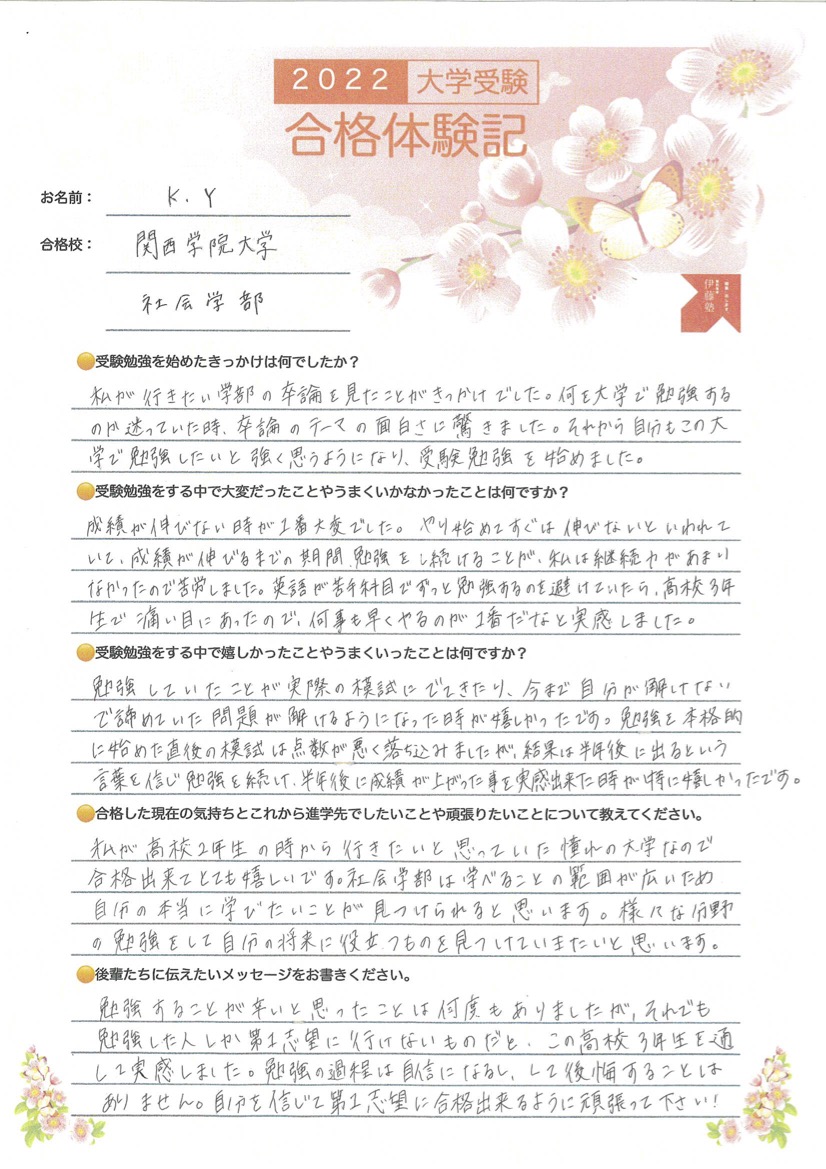 2022 大学受験
合格体験記
お名前： K.Y
合格校： 関西学院大学
社会学部
伊藤塾
受験勉強を始めたきっかけは何でしたか？
私が行きたい学部の卒論を見たことがきっかけでした。何を大学で勉強する
のか迷っていた時、卒論のテーマの面白さに驚きました。それから自分もこの大
学で勉強したいと強く思うようになり、受験勉強を始めました。
受験勉強をする中で大変だったことやうまくいかなかったことは何ですか？
成績が伸びない時が1番大変でした。やり始めてすぐは伸びないといわれて
いて、成績が伸びるまでの期間、勉強をし続けることが、私は継続力があまり
なかったので苦労しました。英語が苦手科目でずっと勉強するのを避けていたら、高校3年
生で痛い目にあったので、何事も早くやるのが1番だなと実感しました。
受験勉強をする中で嬉しかったことやうまくいったことは何ですか？
勉強していたことが実際の模試にでてきたり、今まで自分が解けない
で諦めていた問題が解けるようになった時が嬉しかったです。勉強を本格的
に始めた直後の模試は点数が悪く落ち込みましたが、結果は半年後に出るという
言葉を信じ勉強を続け、半年後に成績が上がった事を実感出来た時が特に嬉しかったです。
合格した現在の気持ちとこれから進学先でしたいことや頑張りたいことについて教えてください。
私が高校2年生の時から行きたいと思っていた憧れの大学なので
合格出来てとても嬉しいです。社会学部は学べることの範囲が広いため
自分の本当に学びたいことが見つけられると思います。様々な分野
の勉強をして自分の将来に役立つものを見つけていきたいと思います。
後輩たちに伝えたいメッセージをお書きください。
勉強することが辛いと思ったことは何度もありましたが、それでも
勉強した人しか第1志望に行けないものだと、この高校3年生を通
して実感しました。勉強の過程は自信になるし、して後悔することは
ありません。自分を信じて第1志望に合格出来るように頑張って下さい！